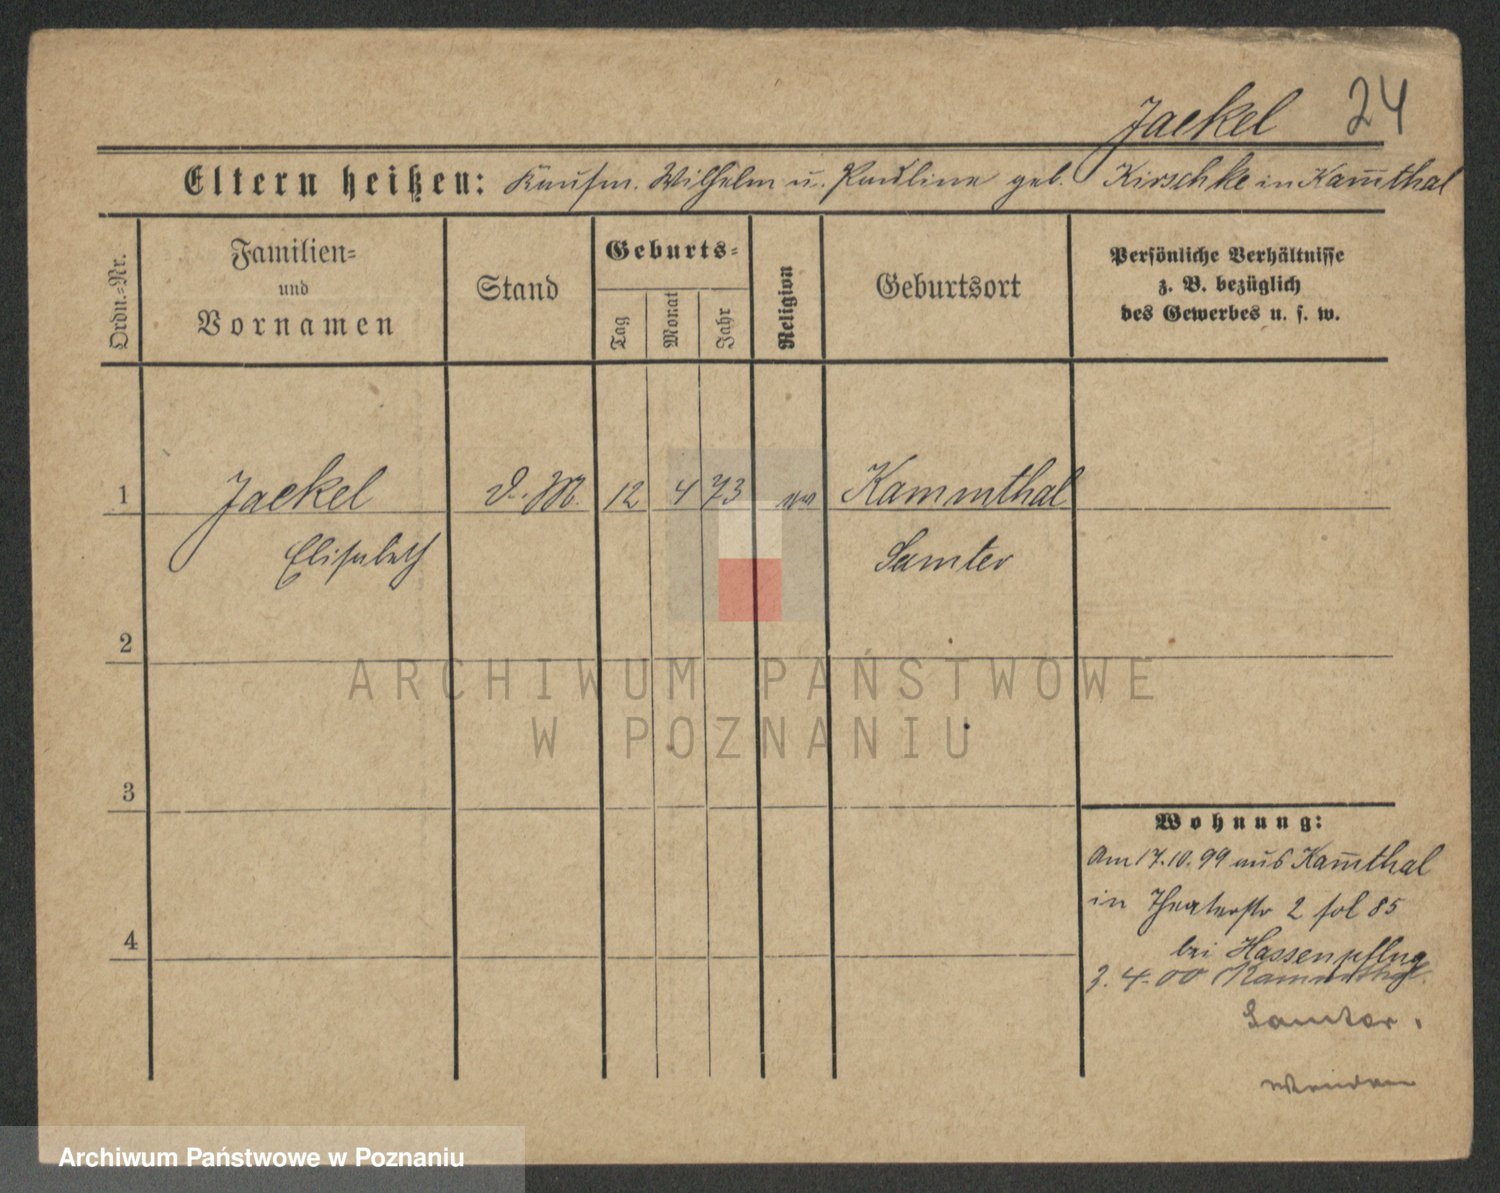 Jaekel 24
Eltern heißen: Kaufm. Wilhelm u. Pauline geb. Kirschke in Kam̅thal
Ordn.-Nr.
Familien-
und
Vornamen
Stand
Geburts-
Tag
Monat
Jahr
Religion
Geburtsort
Persönliche Verhältnisse
z. B. bezüglich
des Gewerbes u. s. w.
1 Jaekel d. M. 12 4 73 ev Kammthal
Elisabeth Samter
2
3
4
Wohnung:
Am 17.10.99 aus Kam̅thal
in Theaterstr 2 fol 85
bei Hassenpflug
3. 4. 00 Kammthal
Samter.
Wenden
ARCHIWUM PAŃSTWOWE
W POZNANIU
Archiwum Państwowe w Poznaniu